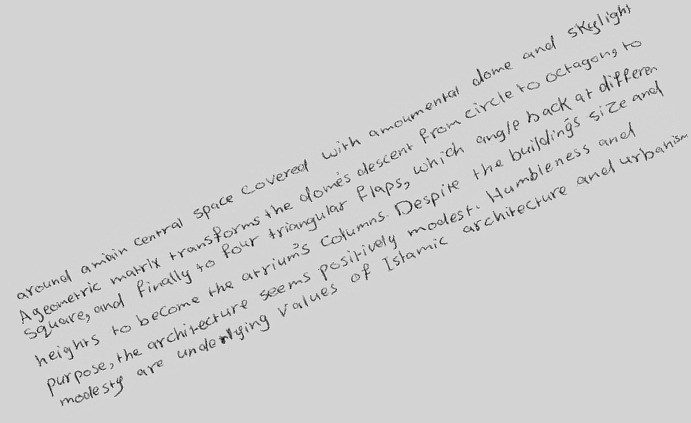 around a main central space covered with amoumental dome and skylight
A geometric matrix transforms the dome's descent from circle to octagon, to
square, and finally to four triangular flaps, which angle back at differen
heights to become the atrium's columns. Despite the building's size and
purpose, the architecture seems positively modest. Humbleness and
modesty are underlying values of Islamic architecture and urbanism